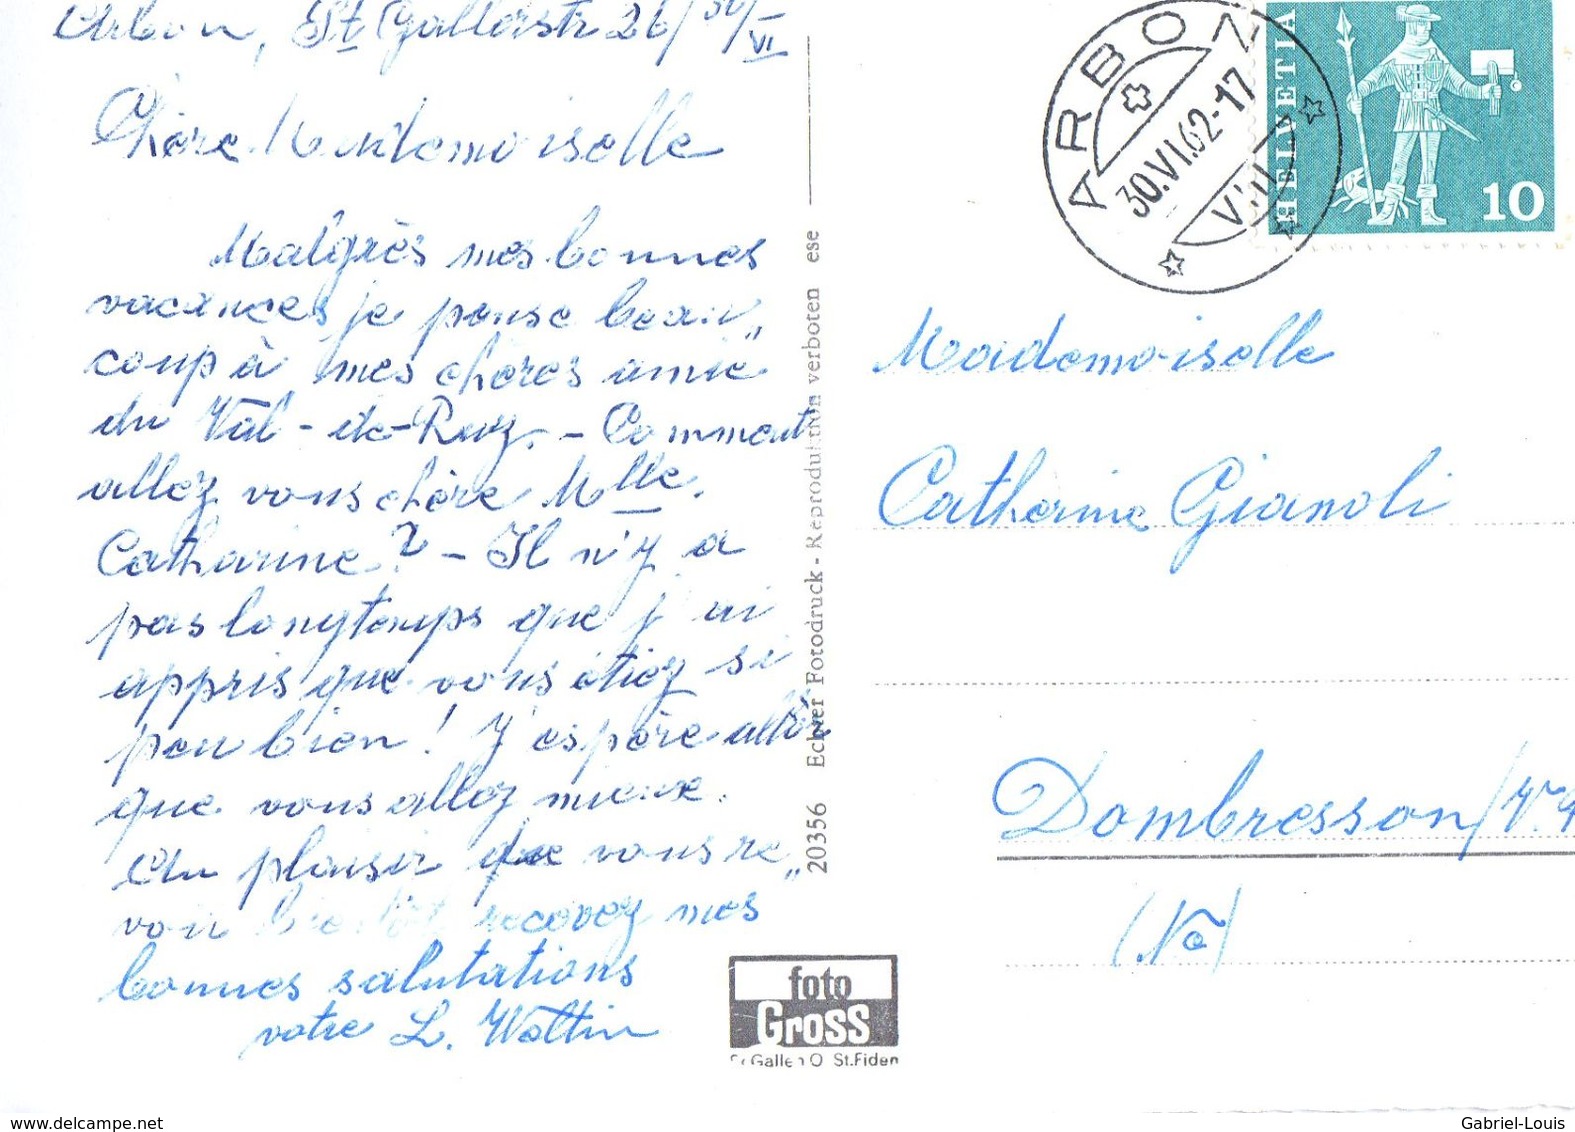 Arbon, St Gallerstr 26 / 30/VI
Chère Mademoiselle
Malgrès mes bonnes
vacances je pense beau„
coup à mes chères amie
du Val-de-Ruz. - Comment
allez vous chère Mlle.
Catharine? - Il n'y a
pas longtemps que j'ai
appris que vous étiez si
peu bien! J'espère
que vous allez mieux.
Au plaisir que vous re„
voir bientôt recevez mes
bonnes salutations
votre L. Wättin
20356 Echter Fotodruck - Reproduktion verboten ese
foto
Gross
St Gallen O St.Fiden
ARBON
30.VI.62-17
VIII
HELVETIA
10
Mademoiselle
Catherine Gianoli
Dombresson/V.
(Ne)
Gabriel-Louis
delcampe.net